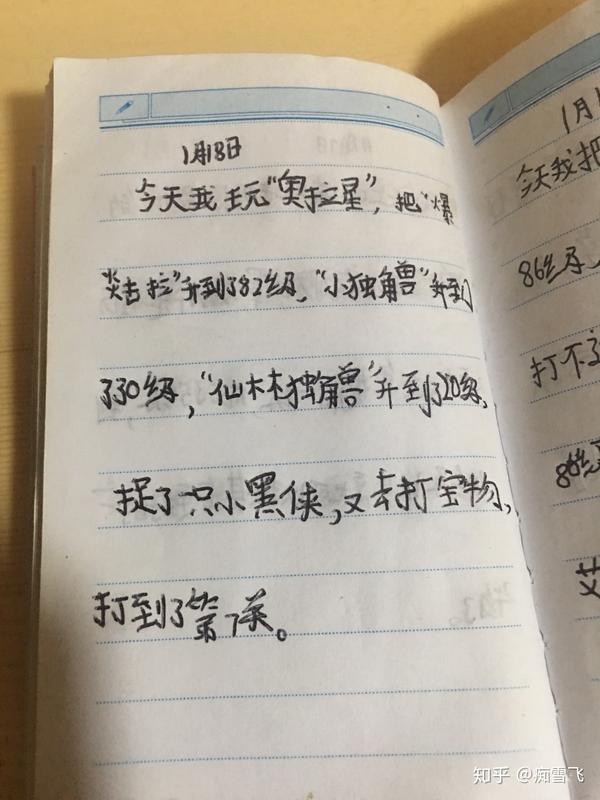 1月18日
今天我玩"奥拉星",把"爆
炎奇拉"升到了82级,"小独角兽"升到
了30级,"仙林独角兽"升到了20级,
捉了只小黑侠,又去打宝物,
打到了第7关。
1月1
今天我把
86级,
打不了
86级
艾
知乎 @痴雪飞